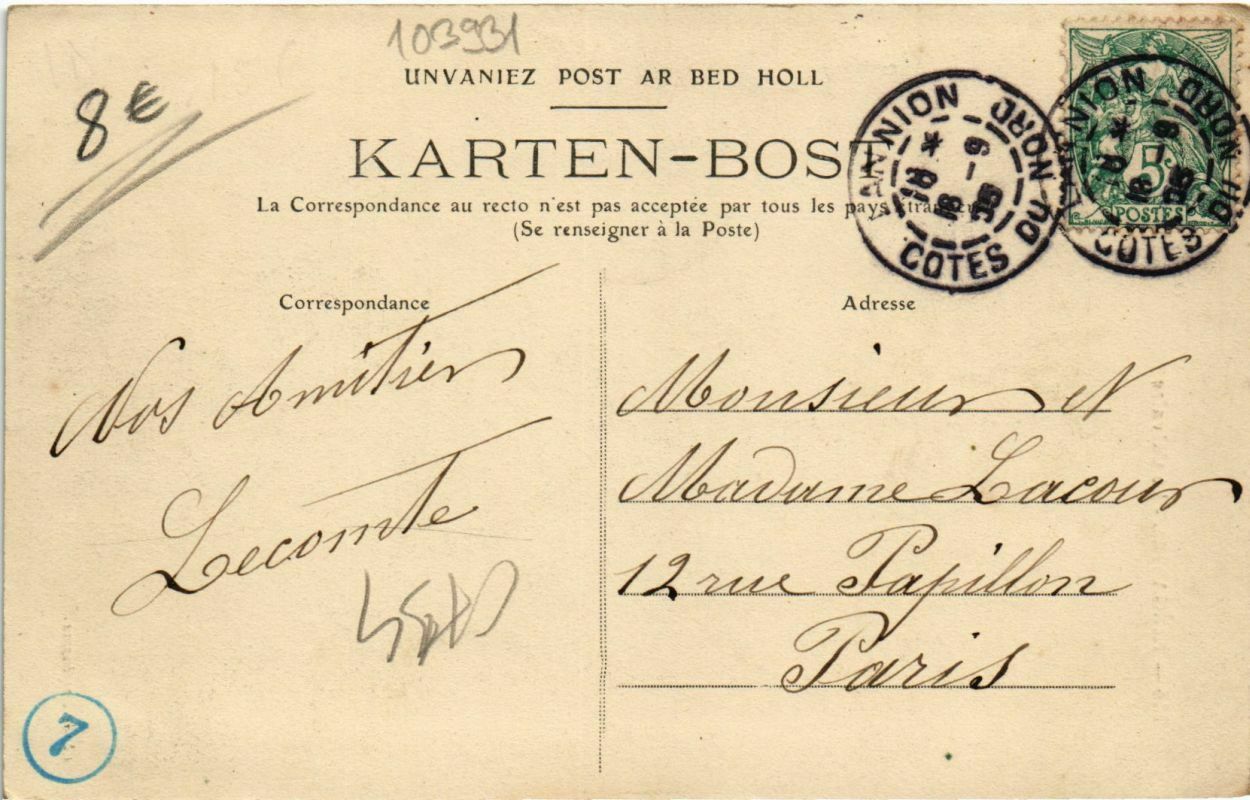 103931
8€
UNVANIEZ POST AR BED HOLL
KARTEN-BOST
La Correspondance au recto n'est pas acceptée par tous les pays étrangers
(Se renseigner à la Poste)
LANNION
COTES DU NORD
LANNION
COTES DU NORD
5c
POSTES
Correspondance
Adresse
Nos Amitiés
Lecomte
Monsieur et
Madame Lacour
12 rue Papillon
Paris
7